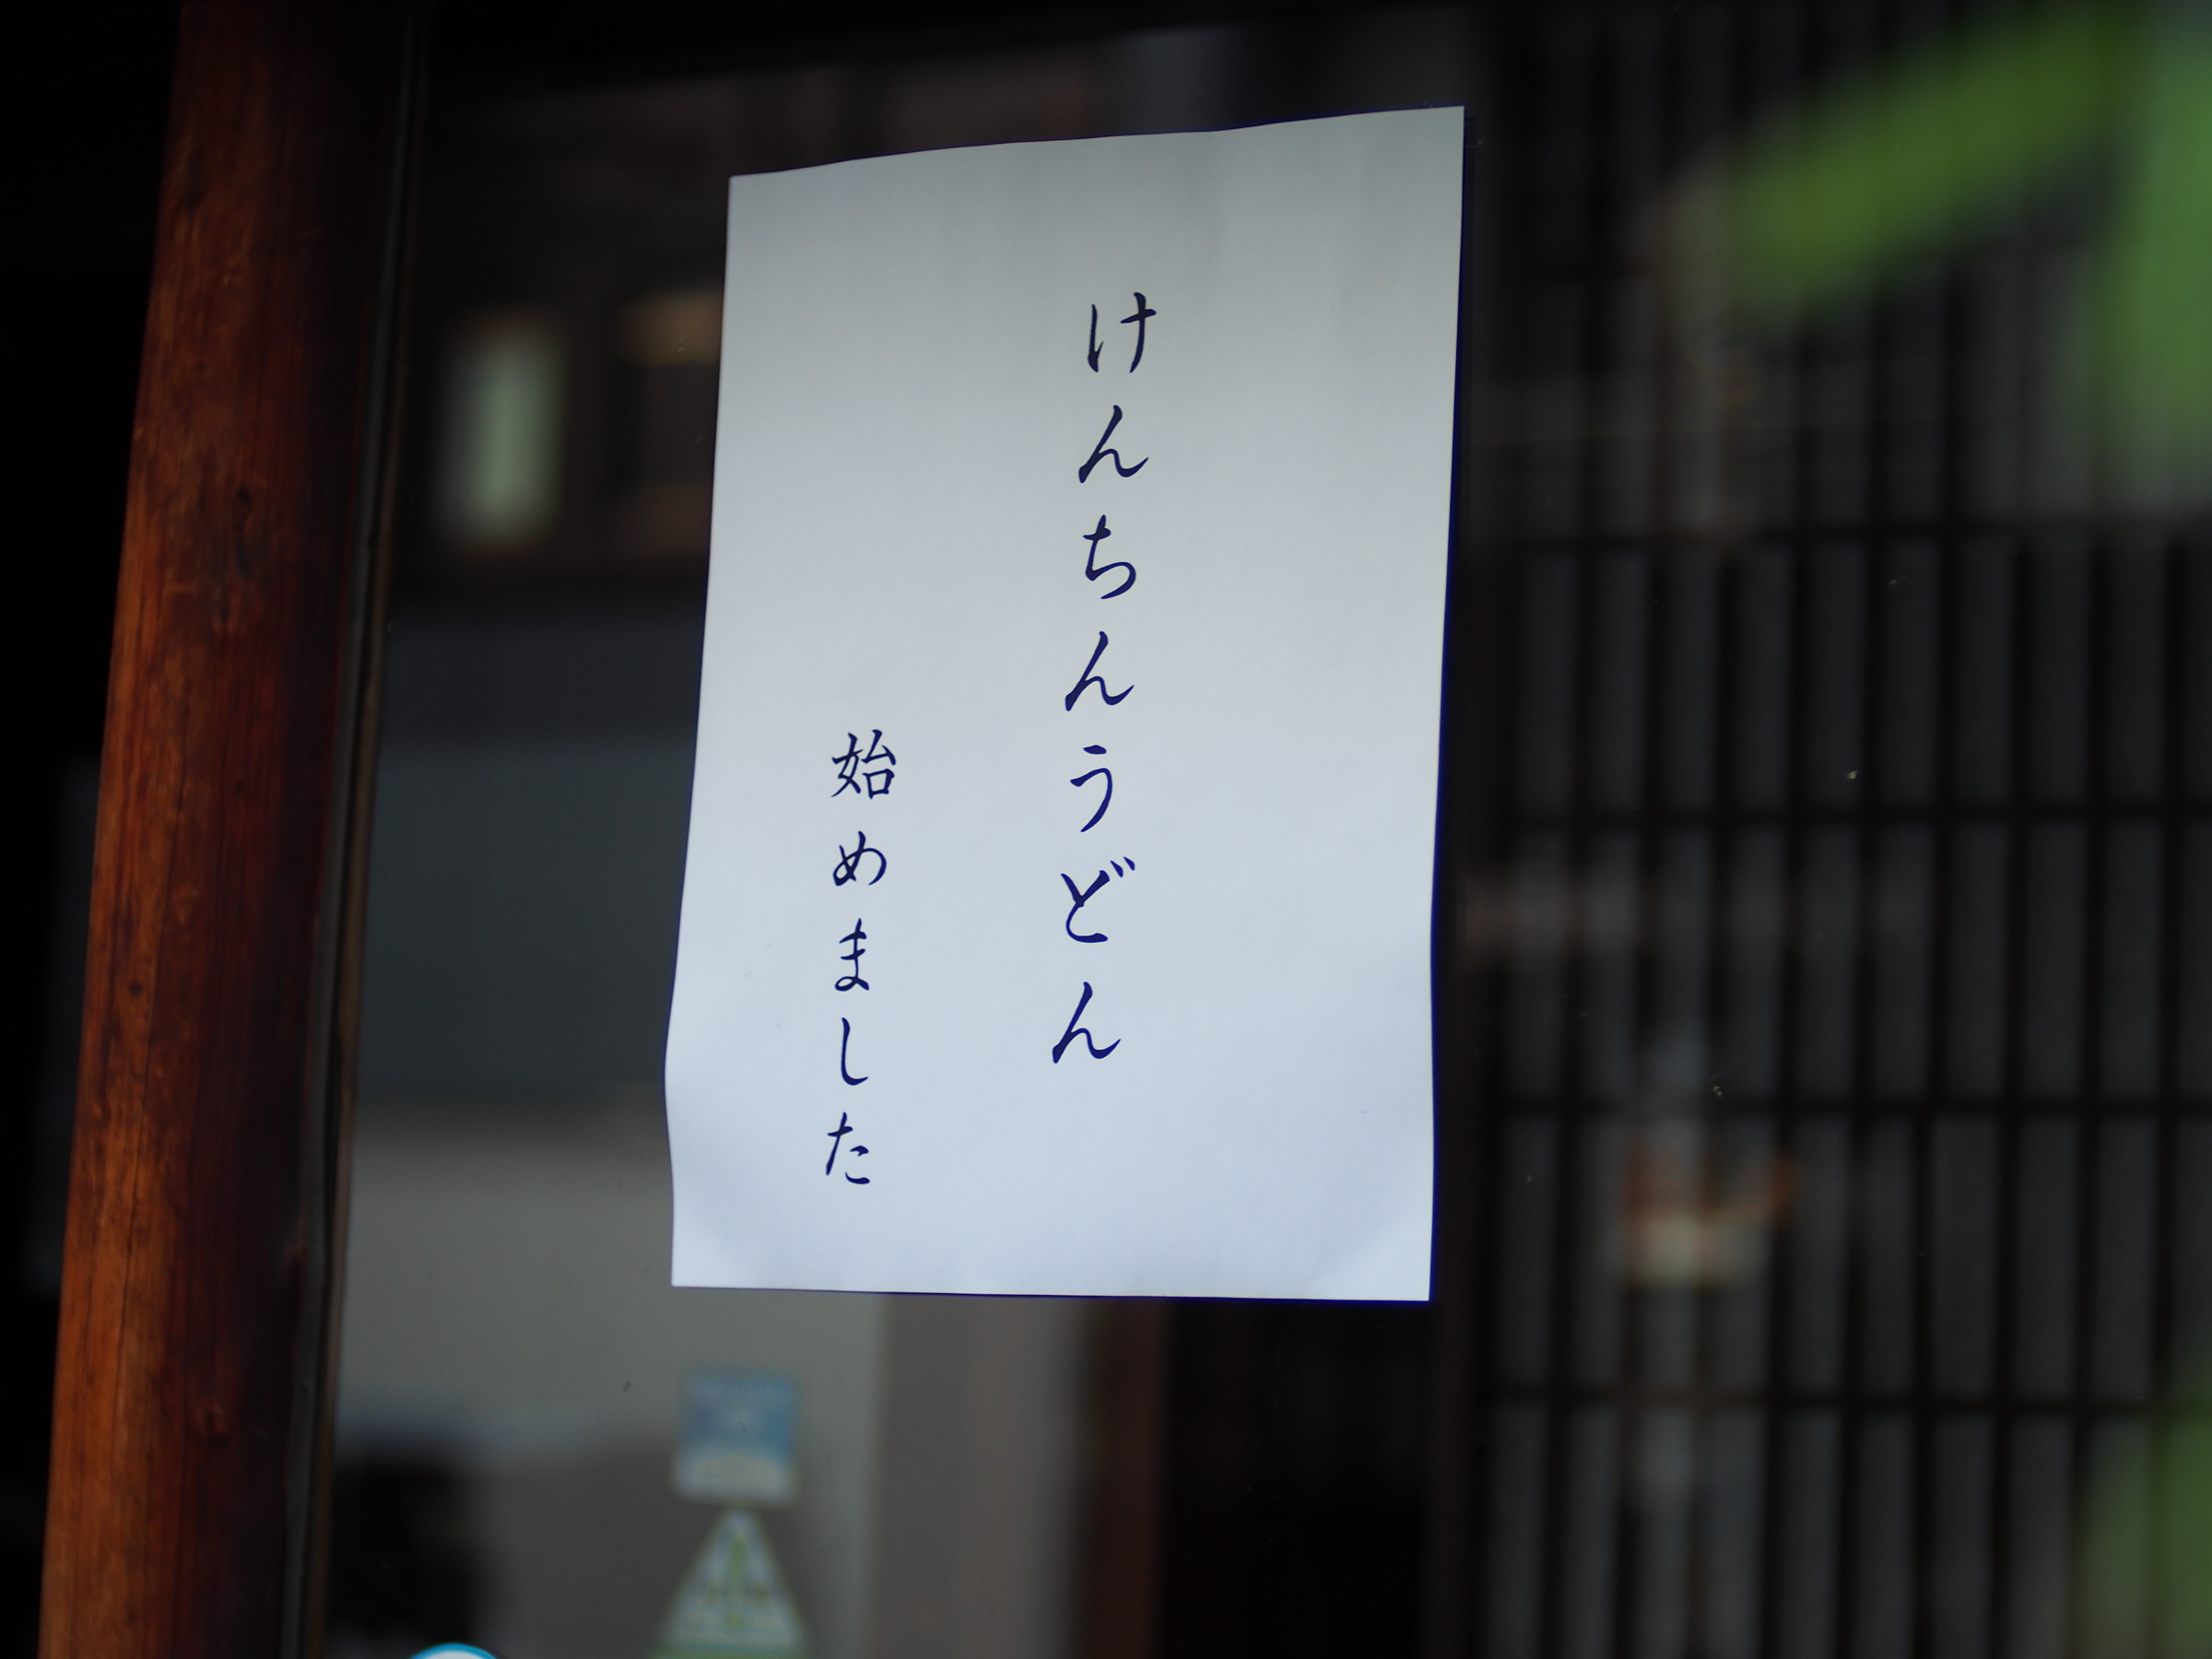 けんちんうどん
始めました